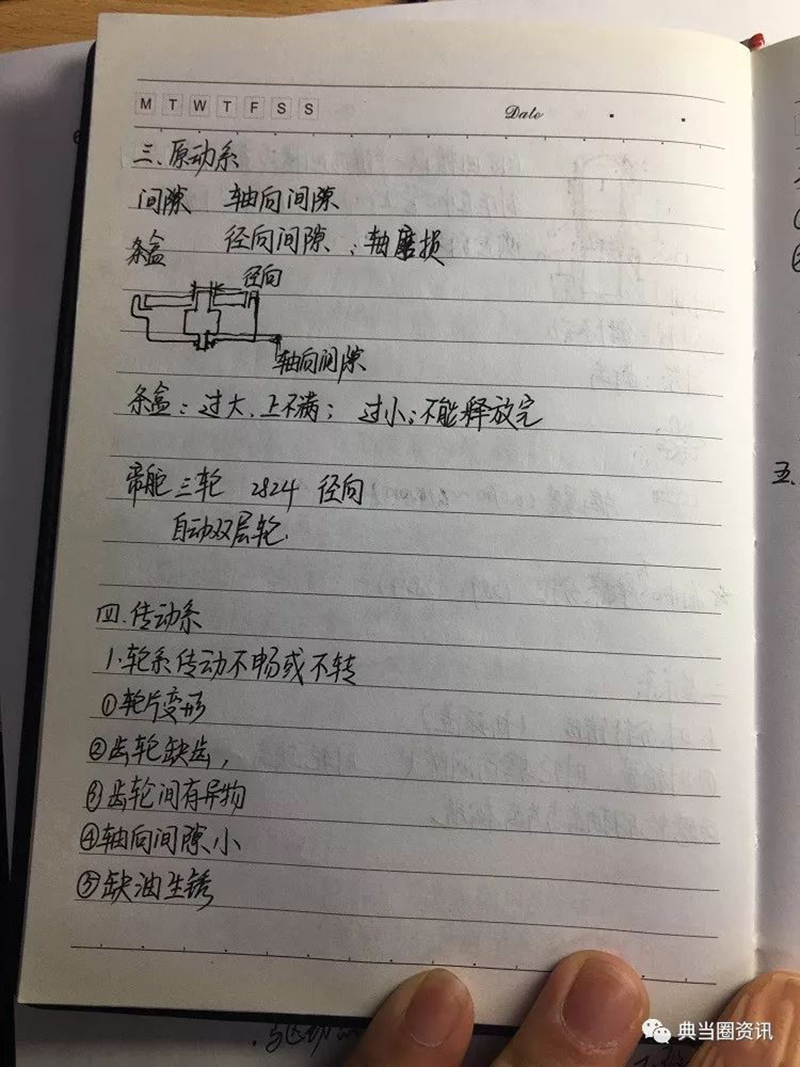 M T W T F S S Date
三.原动系
间隙 轴向间隙
条盒 径向间隙:轴磨损
径向
轴向间隙
条盒:过大、上不满; 过小:不能释放完
帝舵三轮 2824 径向
自动双层轮.
四.传动系
1.轮系传动不畅或不转
①轮片变形
②齿轮缺齿,
③齿轮间有异物
④轴向间隙小
⑤缺油生锈
五.
典当圈资讯